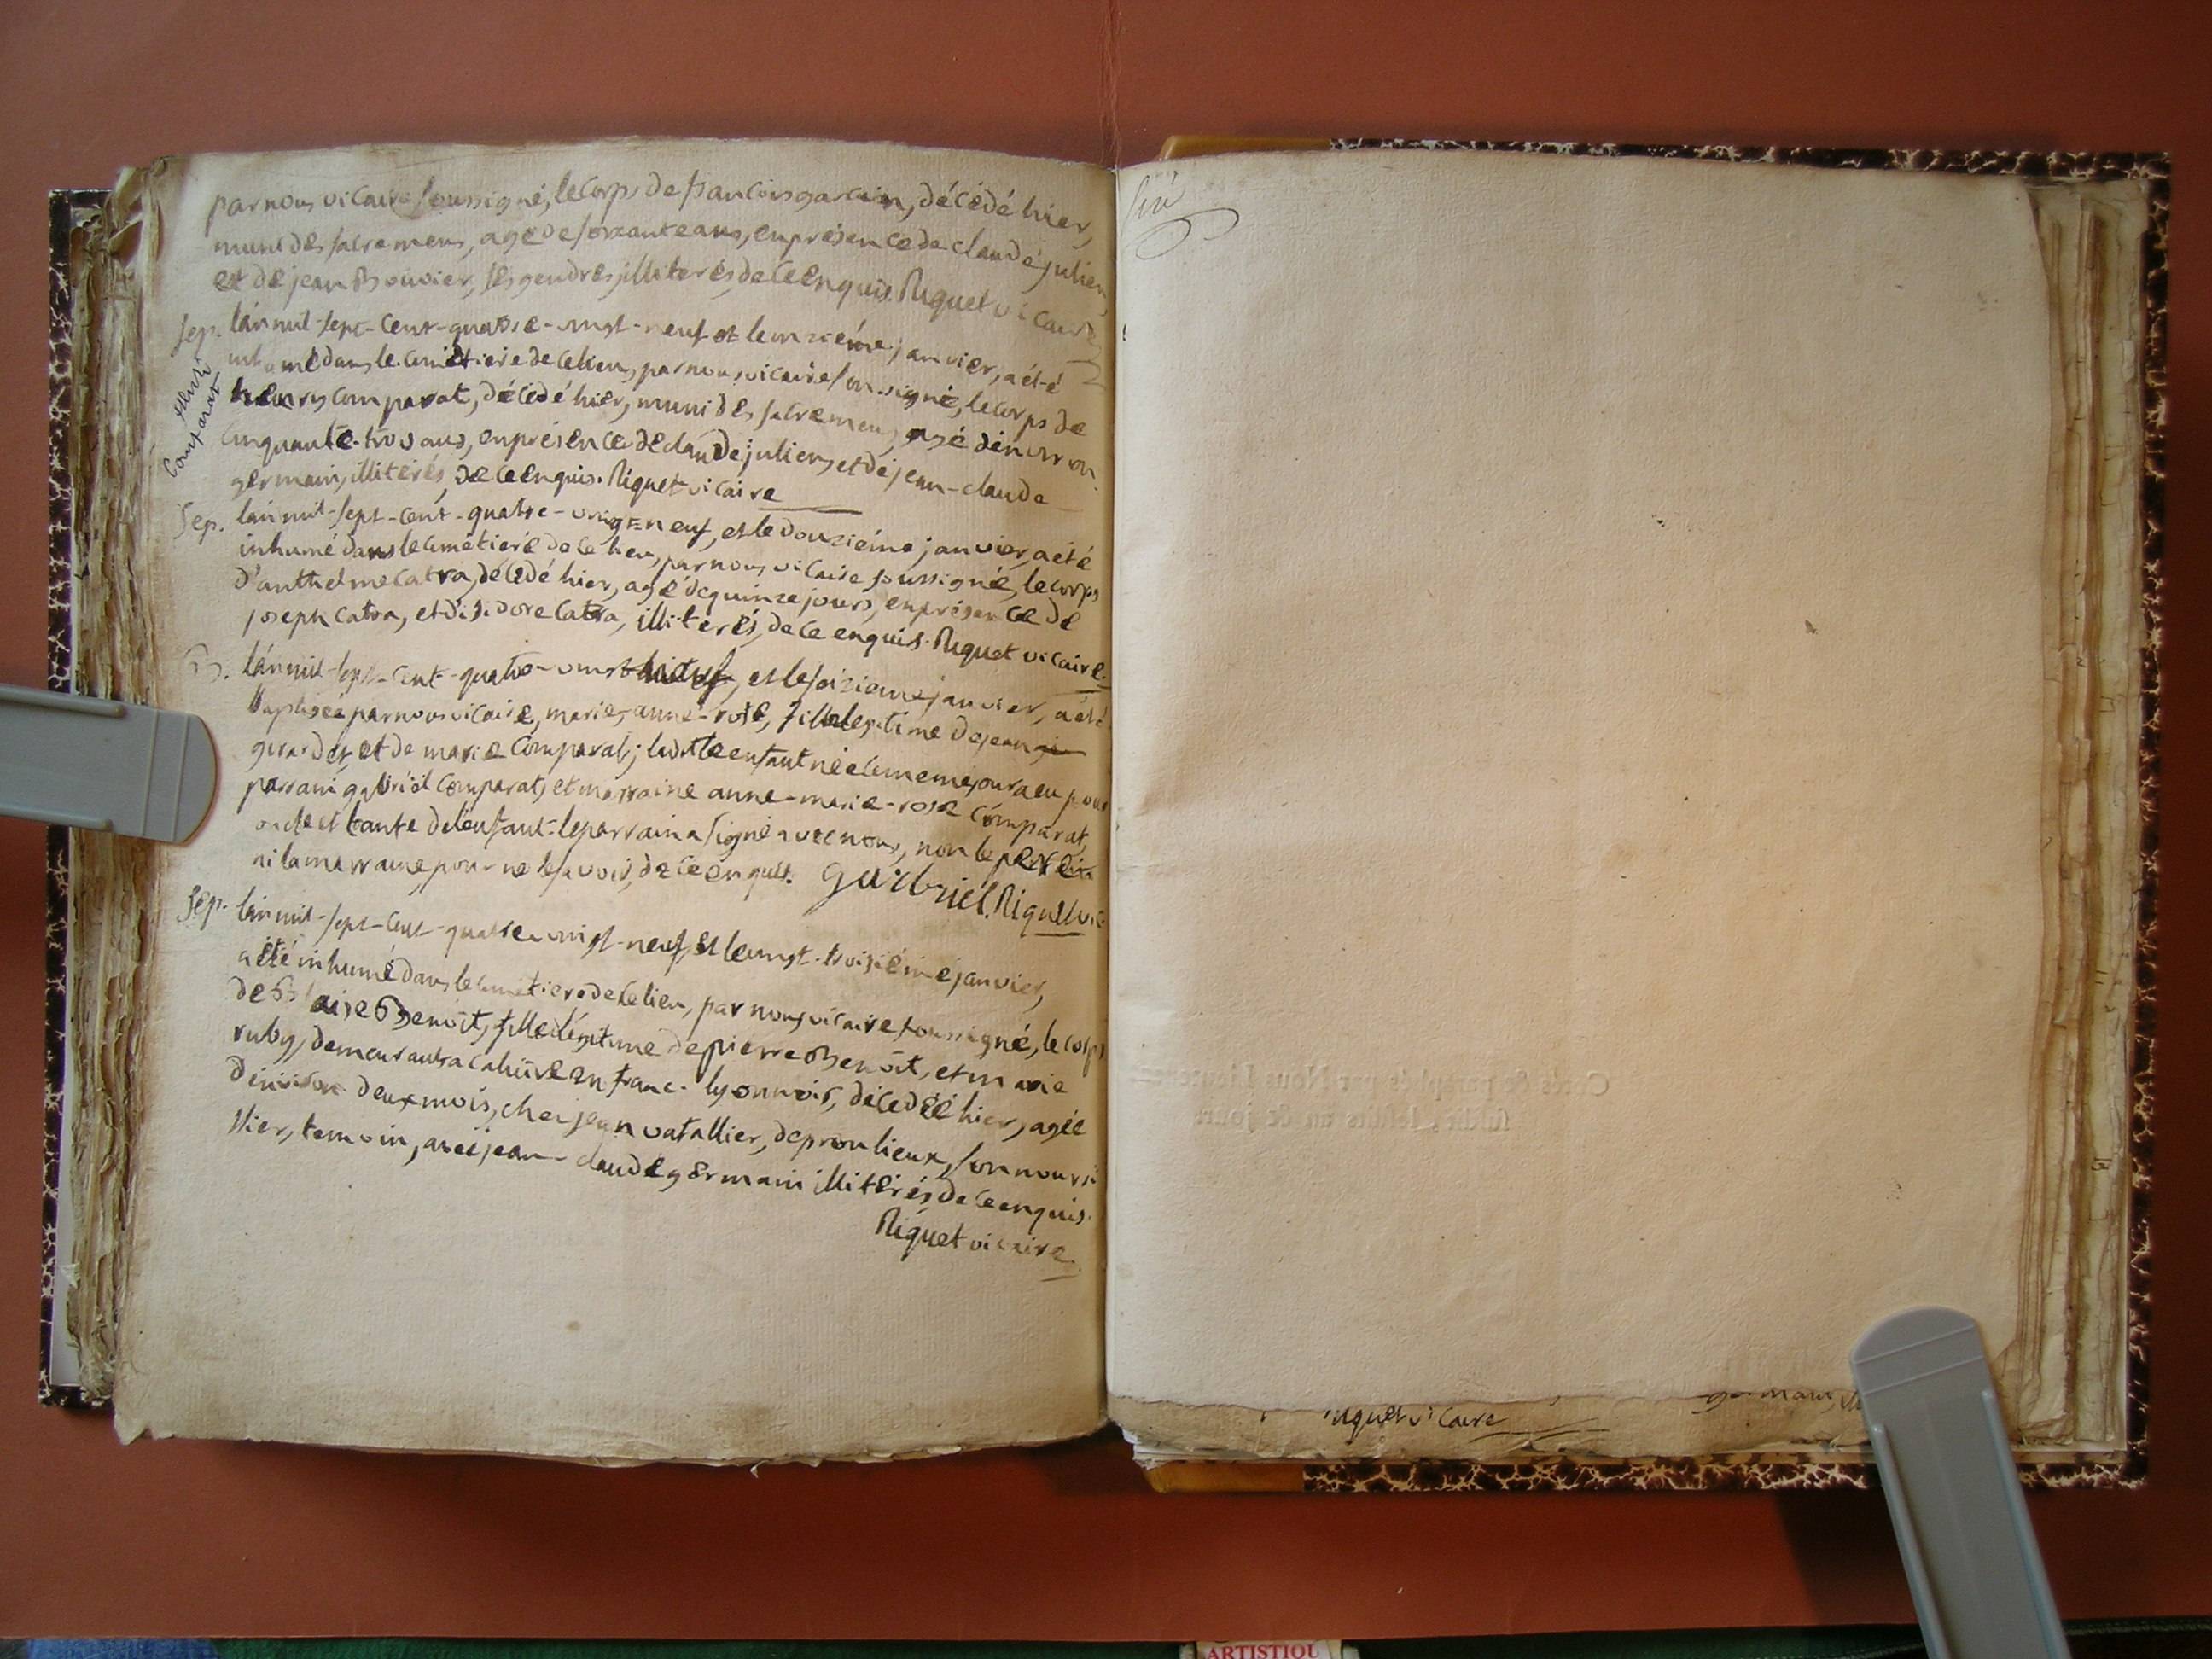 par nous vicaire soussigné, le corps de francois garcin, décédé hier,
muni des sacremens, agé de soixante ans, en présence de claude julien,
et de jean Bouvier, ses gendres, illiterés, de ce enquis. Riquet vicaire
Sep. l'an mil-sept-cent-quatre-vingt-neuf et le onzième janvier, a été
inhumé dans le cimetiere de ce lieu, par nous vicaire soussigné, le corps de
henry comparat, décédé hier, muni des sacremens, agé d'environ
henri
Comparat
cinquante-trois ans, en présence de claude julien, et de jean-claude
germain, illiterés, de ce enquis. Riquet vicaire
Sep. l'an mil-sept-cent-quatre-vingt-neuf, et le douzième janvier, a été
inhumé dans le cimetiere de ce lieu, par nous vicaire soussigné, le corps
d'anthelme catra, décédé hier, agé de quinze jours, en présence de
joseph catra, et d'isidore catra, illiterés, de ce enquis. Riquet vicaire.
B. l'an mil-sept-cent-quatre-vingt-neuf, et le seizieme janvier, a été
baptisée par nous vicaire, marie-anne-rose, fille legitime de jean
girardet, et de marie comparat; ladite enfant née le meme jour a eu pour
parrain gabriël comparat, et marraine anne-marie-rose comparat,
oncle et tante de l'enfant. le parrain a signé avec nous, non le pere
ni la marraine, pour ne le savoir, de ce enquis. gaibriel. Riquet vic
Sep. l'an mil-sept-cent-quatre-vingt-neuf, et le vingt-troisième janvier,
a été inhumé dans le cimetiere de ce lieu, par nous vicaire soussigné, le corps
de Blaise Benoît, fille légitime de pierre Benoît, et marie
ruby, demeurants a caluire en franc-lyonnois, décédée hier, agée
d'environ deux mois, chez jean vatallier, de proulieux, son nourri
ssier, temoin, avec jean-claude germain illiterés, de ce enquis.
Riquet vicaire.
Riquet vicaire
germain,